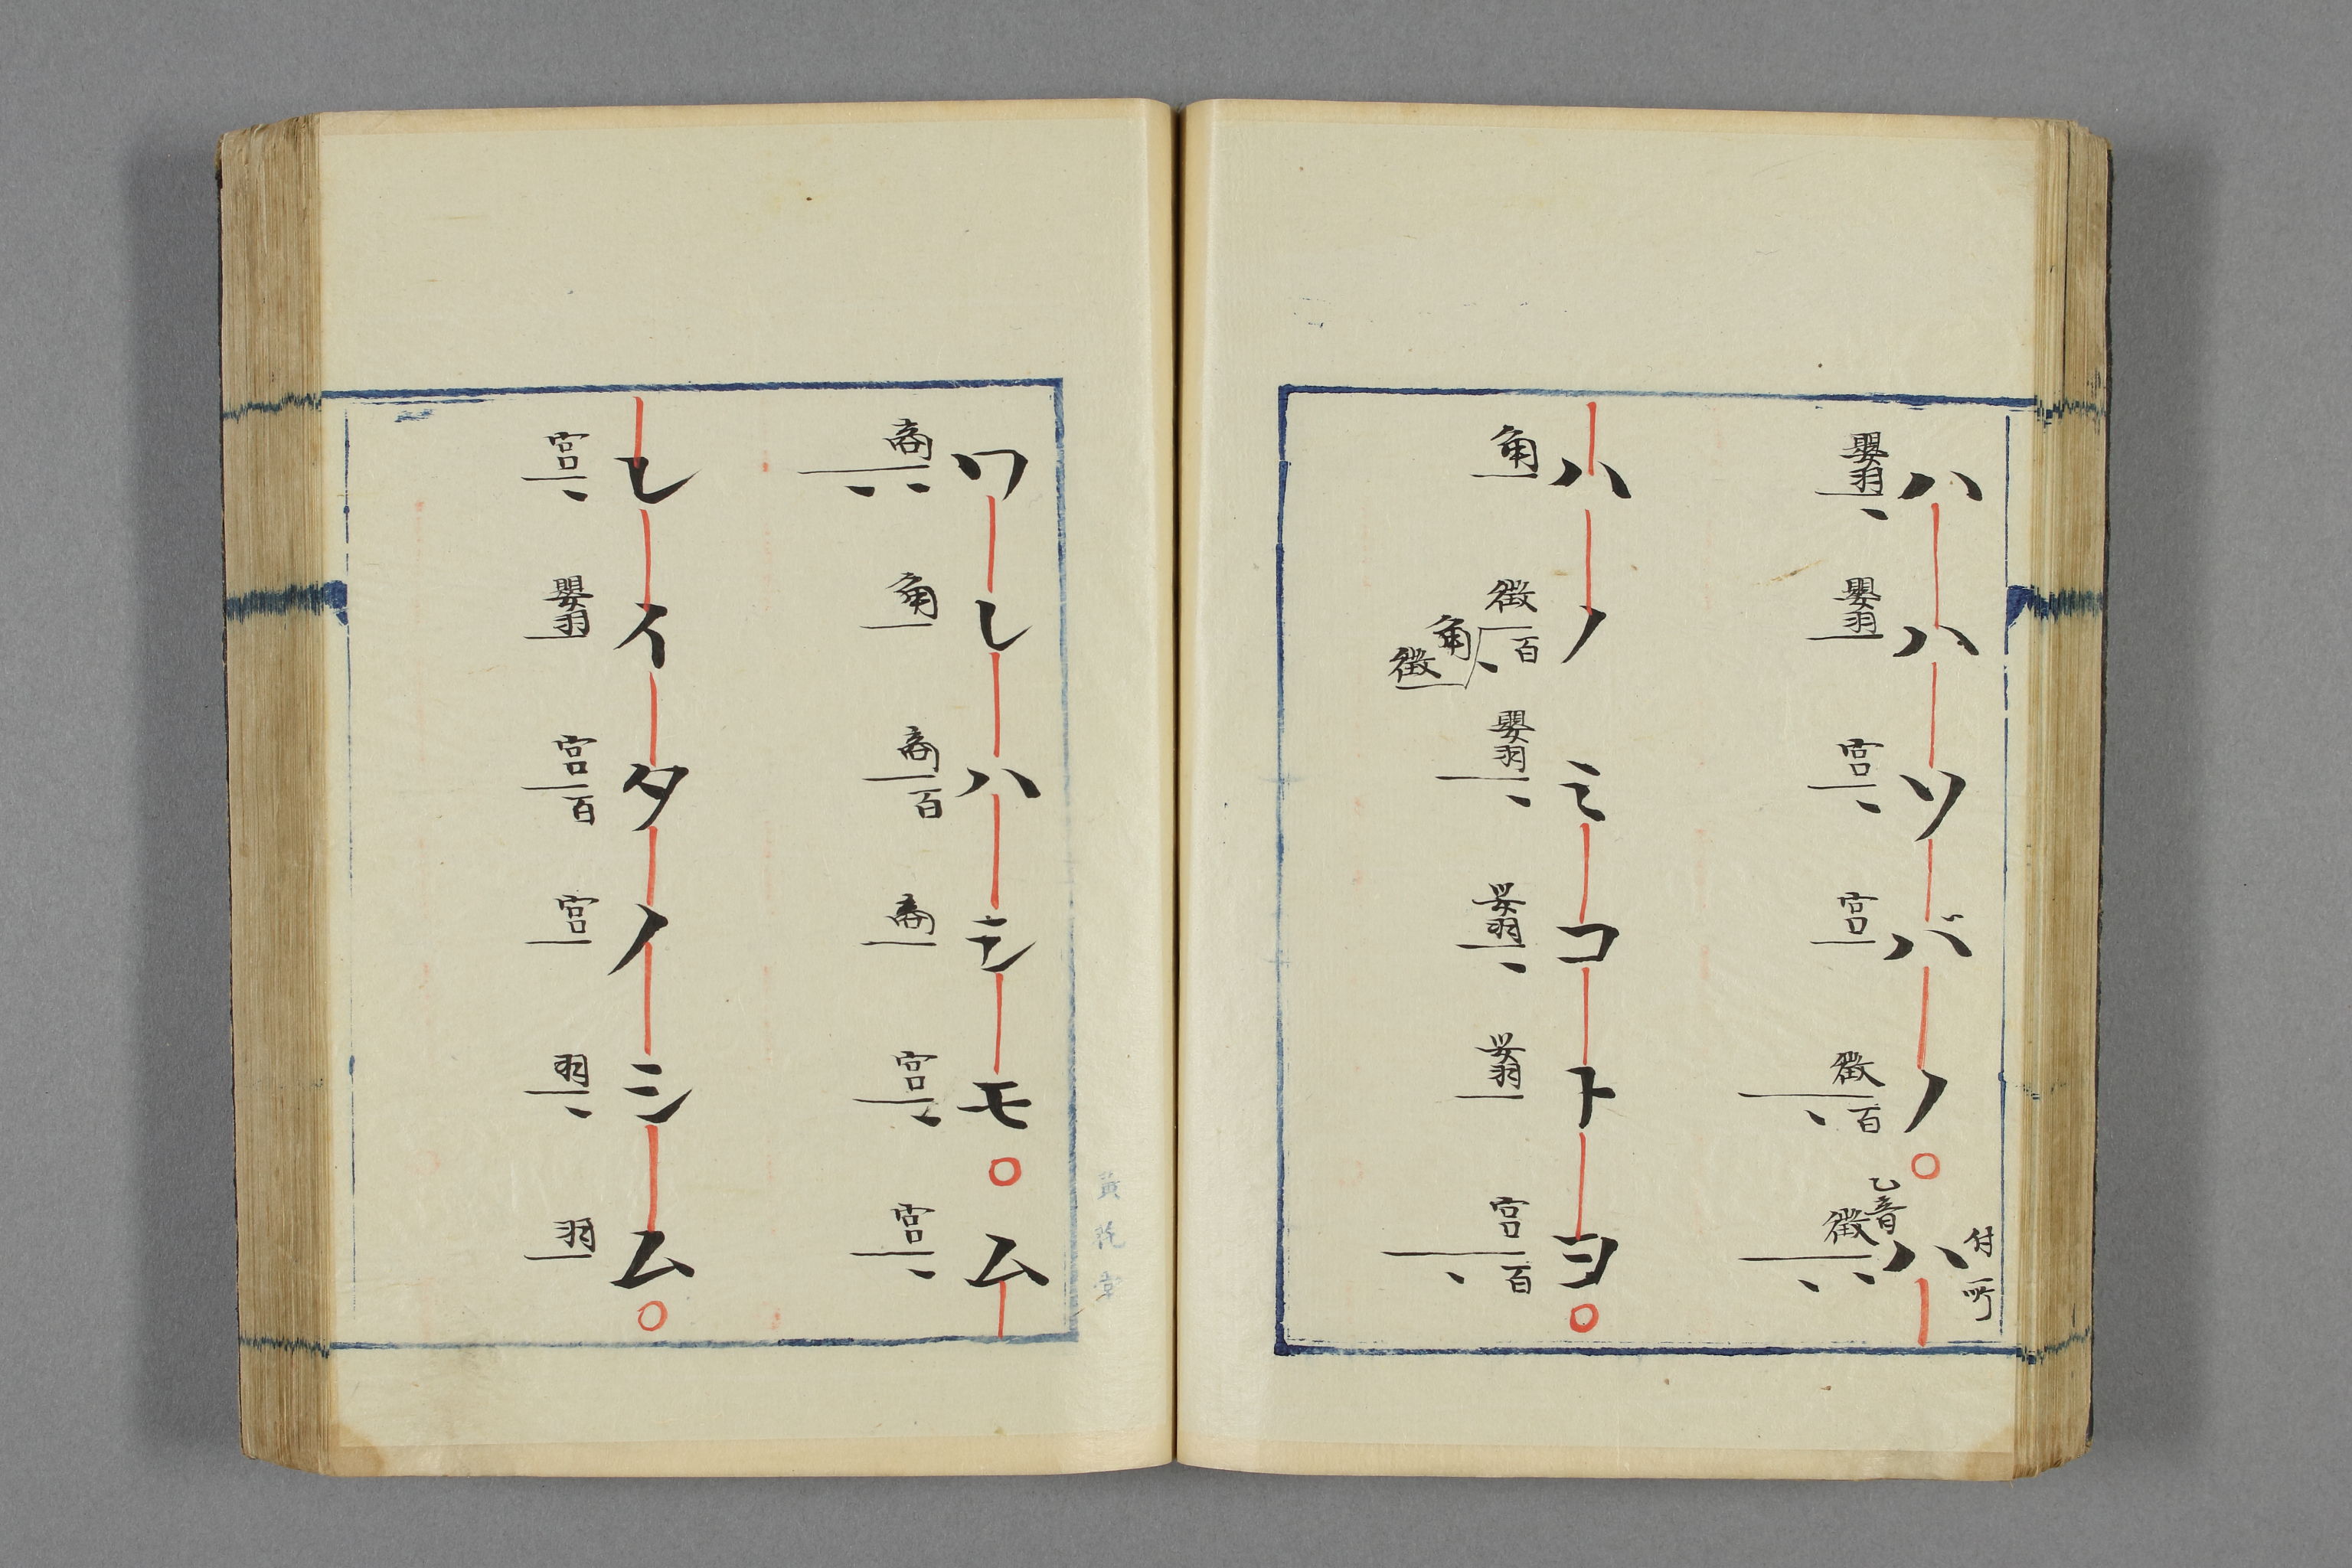 付所
ハハソバノ○ハ
嬰羽 嬰羽 宮 宮 徴百 乙音徴
ハノミコトヨ○
角 徴百角徴 嬰羽 嬰羽 嬰羽 宮百
ワレハモモ○ム
商 角 商百 商 宮 宮
レイタノシム○
宮 嬰羽 宮百 宮 羽 羽